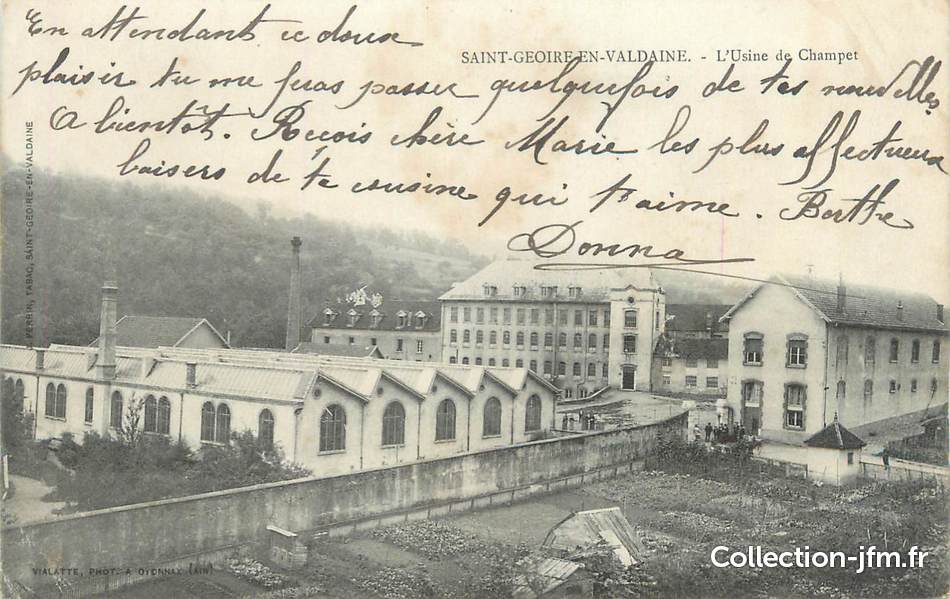 En attendant ce doux
SAINT-GEOIRE-EN-VALDAINE. - L'Usine de Champet
plaisir tu me feras passer quelquefois de tes nouvelles
A bientôt. Reçois chère Marie les plus affectueux
baisers de ta cousine qui t'aime. Berthe
Donna
PERRIN, TABAC, SAINT-GEOIRE-EN-VALDAINE
VIALATTE, PHOT. A OYONNAX (AIN)
Collection-jfm.fr